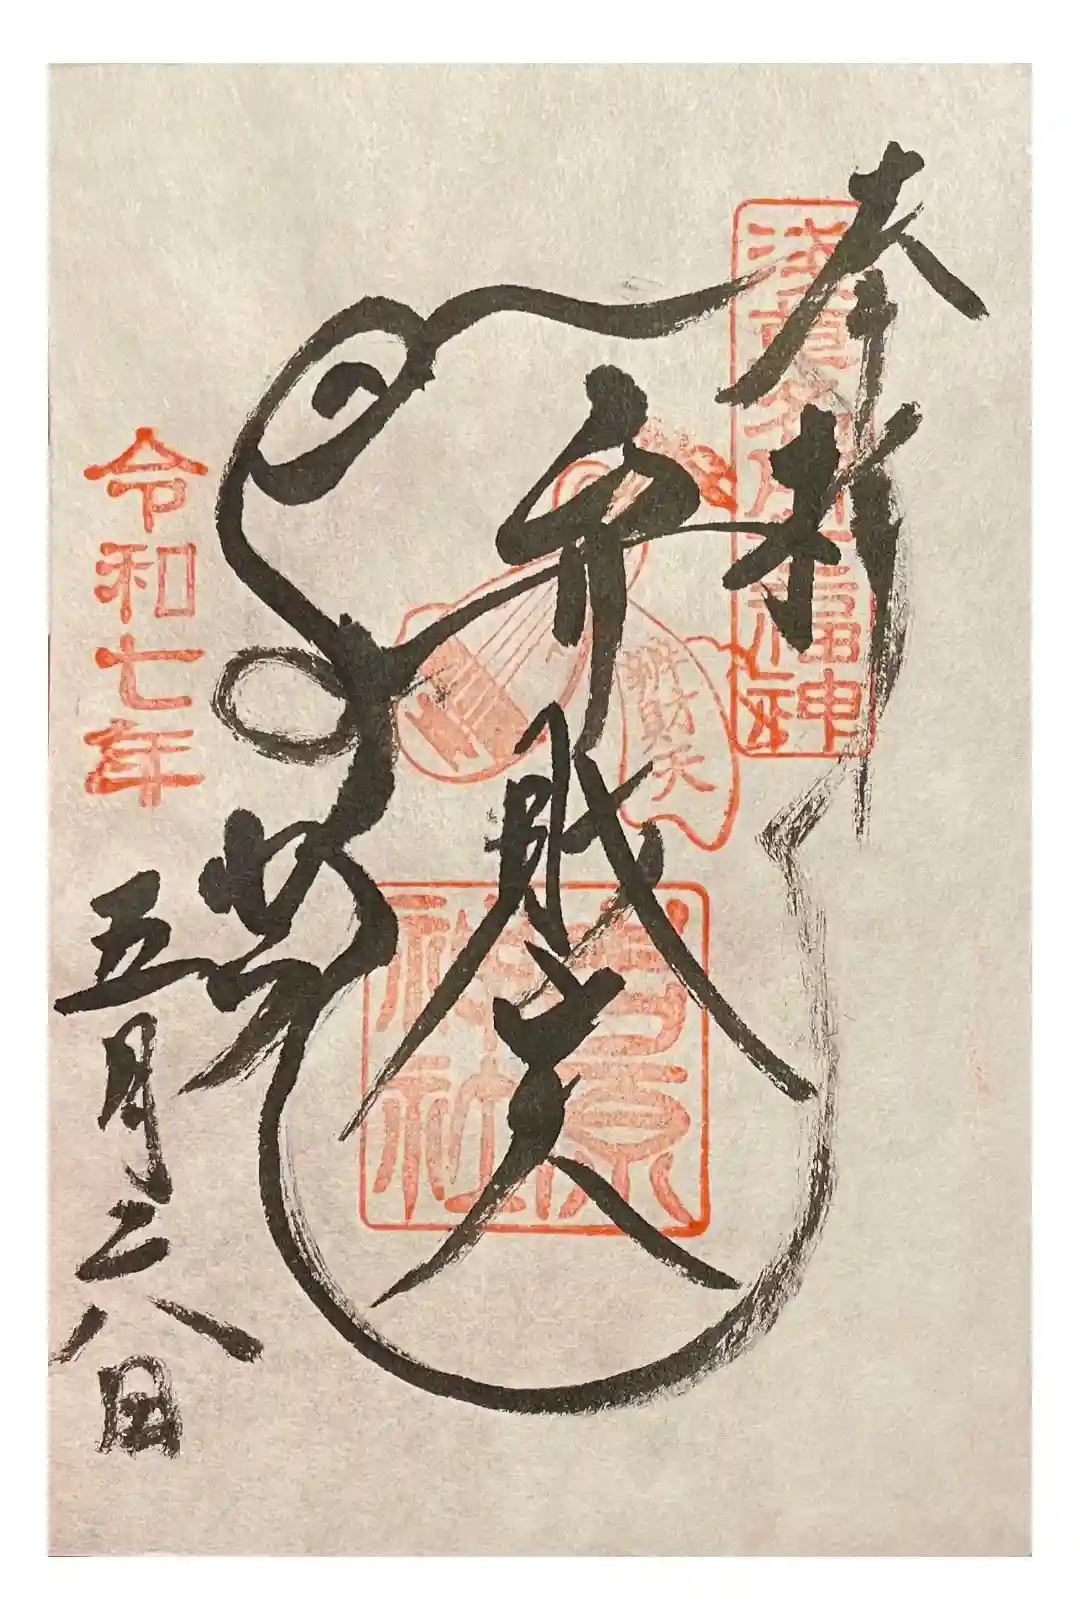 奉拝
浅草名所七福神
弁財天
辨財天
吉原神社
令和七年
五月二八日